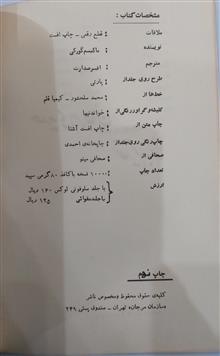 مشخصات کتاب:
ملاقات : قطع رقعی - چاپ افست
نویسنده : ماکسیم گورکی
مترجم : افسر صدارت
طرح روی جلد از : پاد‌نی
خطها از : محمد سلحشور - کیمیا قلم
کلیشه و گراور رنگی از : خواندنیها
چاپ متن از : چاپ افست آشنا
چاپ رنگی روی جلد از : چاپخانه‌ی احمدی
صحافی از : صحافی مینو
تعداد چاپ : ۱۰۰۰۰ نسخه با کاغذ ۸۰ گرمی سپید
ارزش : با جلد سلوفونی لوکس ۱۶۰ ریال
با جلد مقوائی ۱۲۵ ریال
چاپ نهم
کلیه‌ی حقوق محفوظ و مخصوص ناشر
«سازمان مرجان» تهران - صندوق پستی ۲۴۹